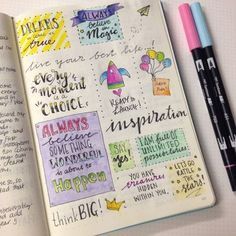 DREAMS
come
true
ALWAYS
believe
in
Magic
live your best life
every
MOMENT
is a
CHOICE
READY to
LAUNCH!
inspiration
ALWAYS
believe
SOMETHING
WONDERFUL
is about to
Happen
SAY
yes
I AM full OF
UNLIMITED
possibilities
YOU HAVE
treasures
HIDDEN
WITHIN YOU.
LET'S GO
RATTLE
THE
stars!
think BIG!